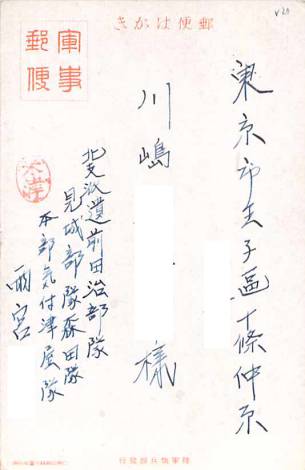 郵便はがき
軍事
郵便
東京市王子區十條仲原
川嶋 様
北支派遣前田治部隊
見城部隊森田隊
本部気付津屋隊
雨宮
陸軍恤兵部發行